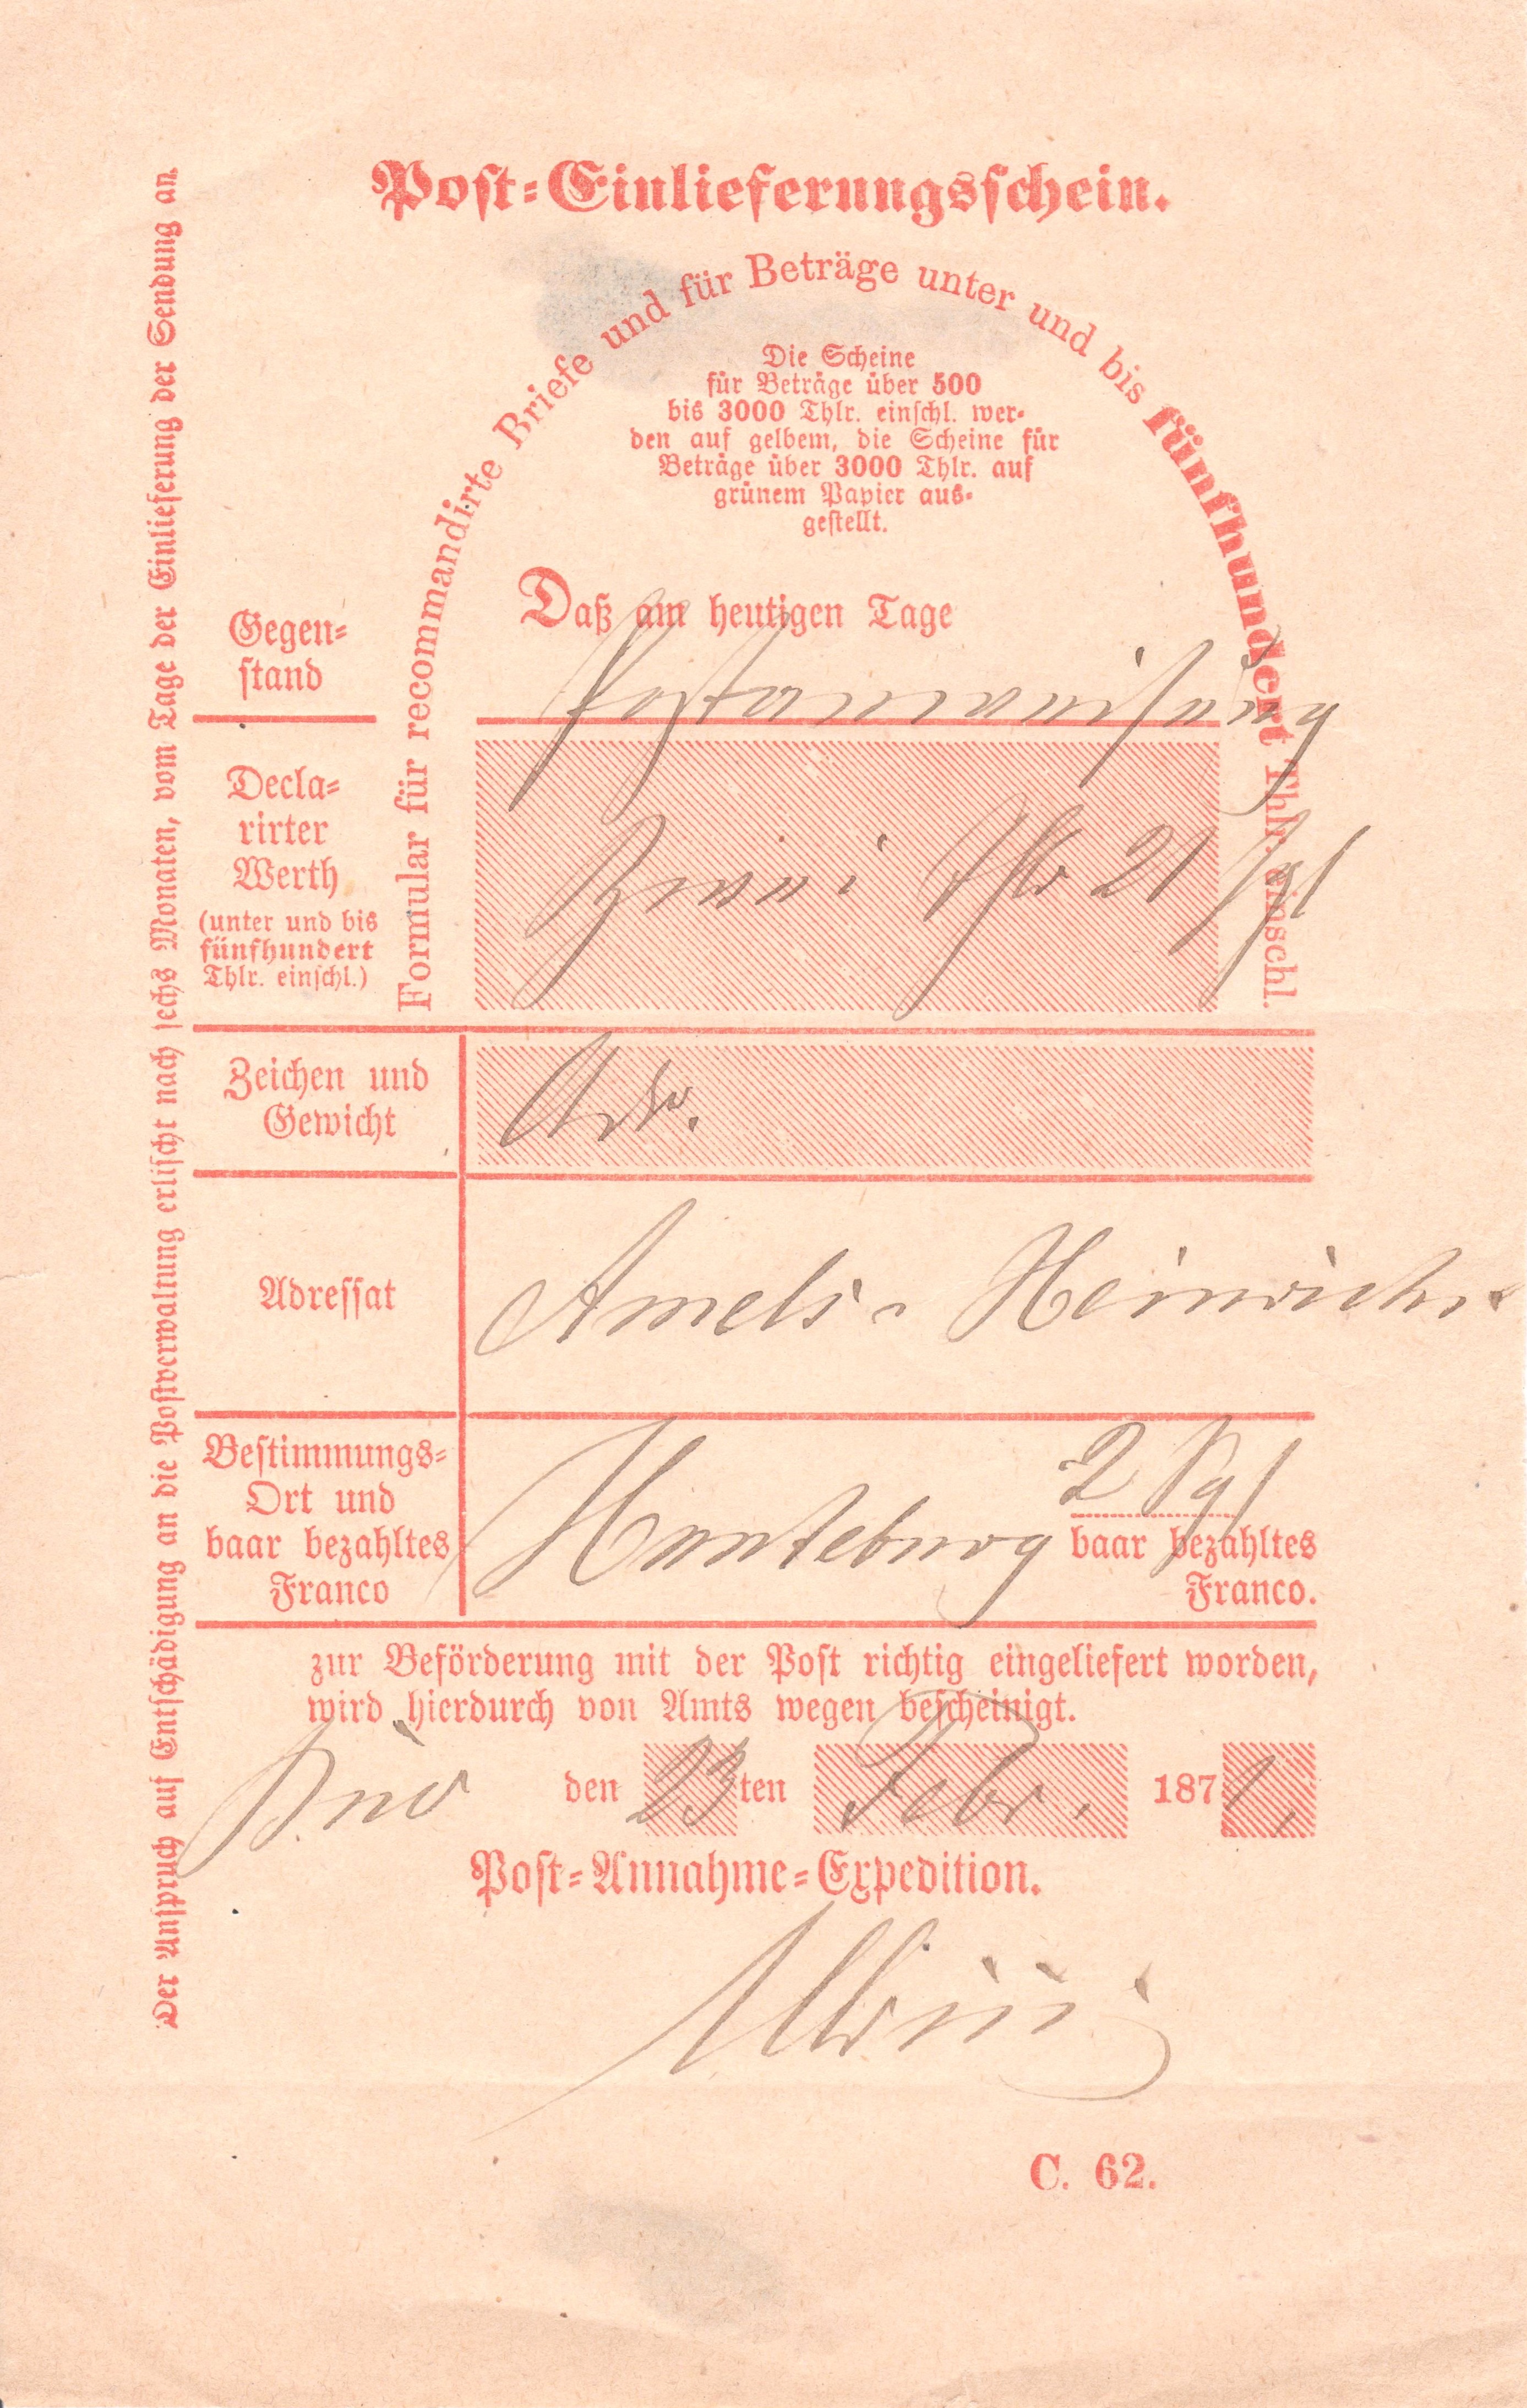 Post-Einlieferungsschein.
Formular für recommandirte Briefe und für Beträge unter und bis fünfhundert Thlr. einschl.
Die Scheine
für Beträge über 500
bis 3000 Thlr. einschl. wer-
den auf gelbem, die Scheine für
Beträge über 3000 Thlr. auf
grünem Papier aus-
gestellt.
Daß am heutigen Tage
Gegen-
stand
Postanweisung
Decla-
rirter
Werth
(unter und bis
fünfhundert
Thlr. einschl.)
21 Sgl
Zeichen und
Gewicht
Adr.
Adressat
Amels Heinrichs
Bestimmungs-
Ort und
baar bezahltes
Franco
Hunteburg
2 Sgl
baar bezahltes
Franco.
zur Beförderung mit der Post richtig eingeliefert worden,
wird hierdurch von Amts wegen bescheinigt.
den 23ten Febr. 1871.
Post-Annahme-Expedition.
C. 62.
Der Anspruch auf Entschädigung an die Postverwaltung erlischt nach sechs Monaten, vom Tage der Einlieferung der Sendung an.